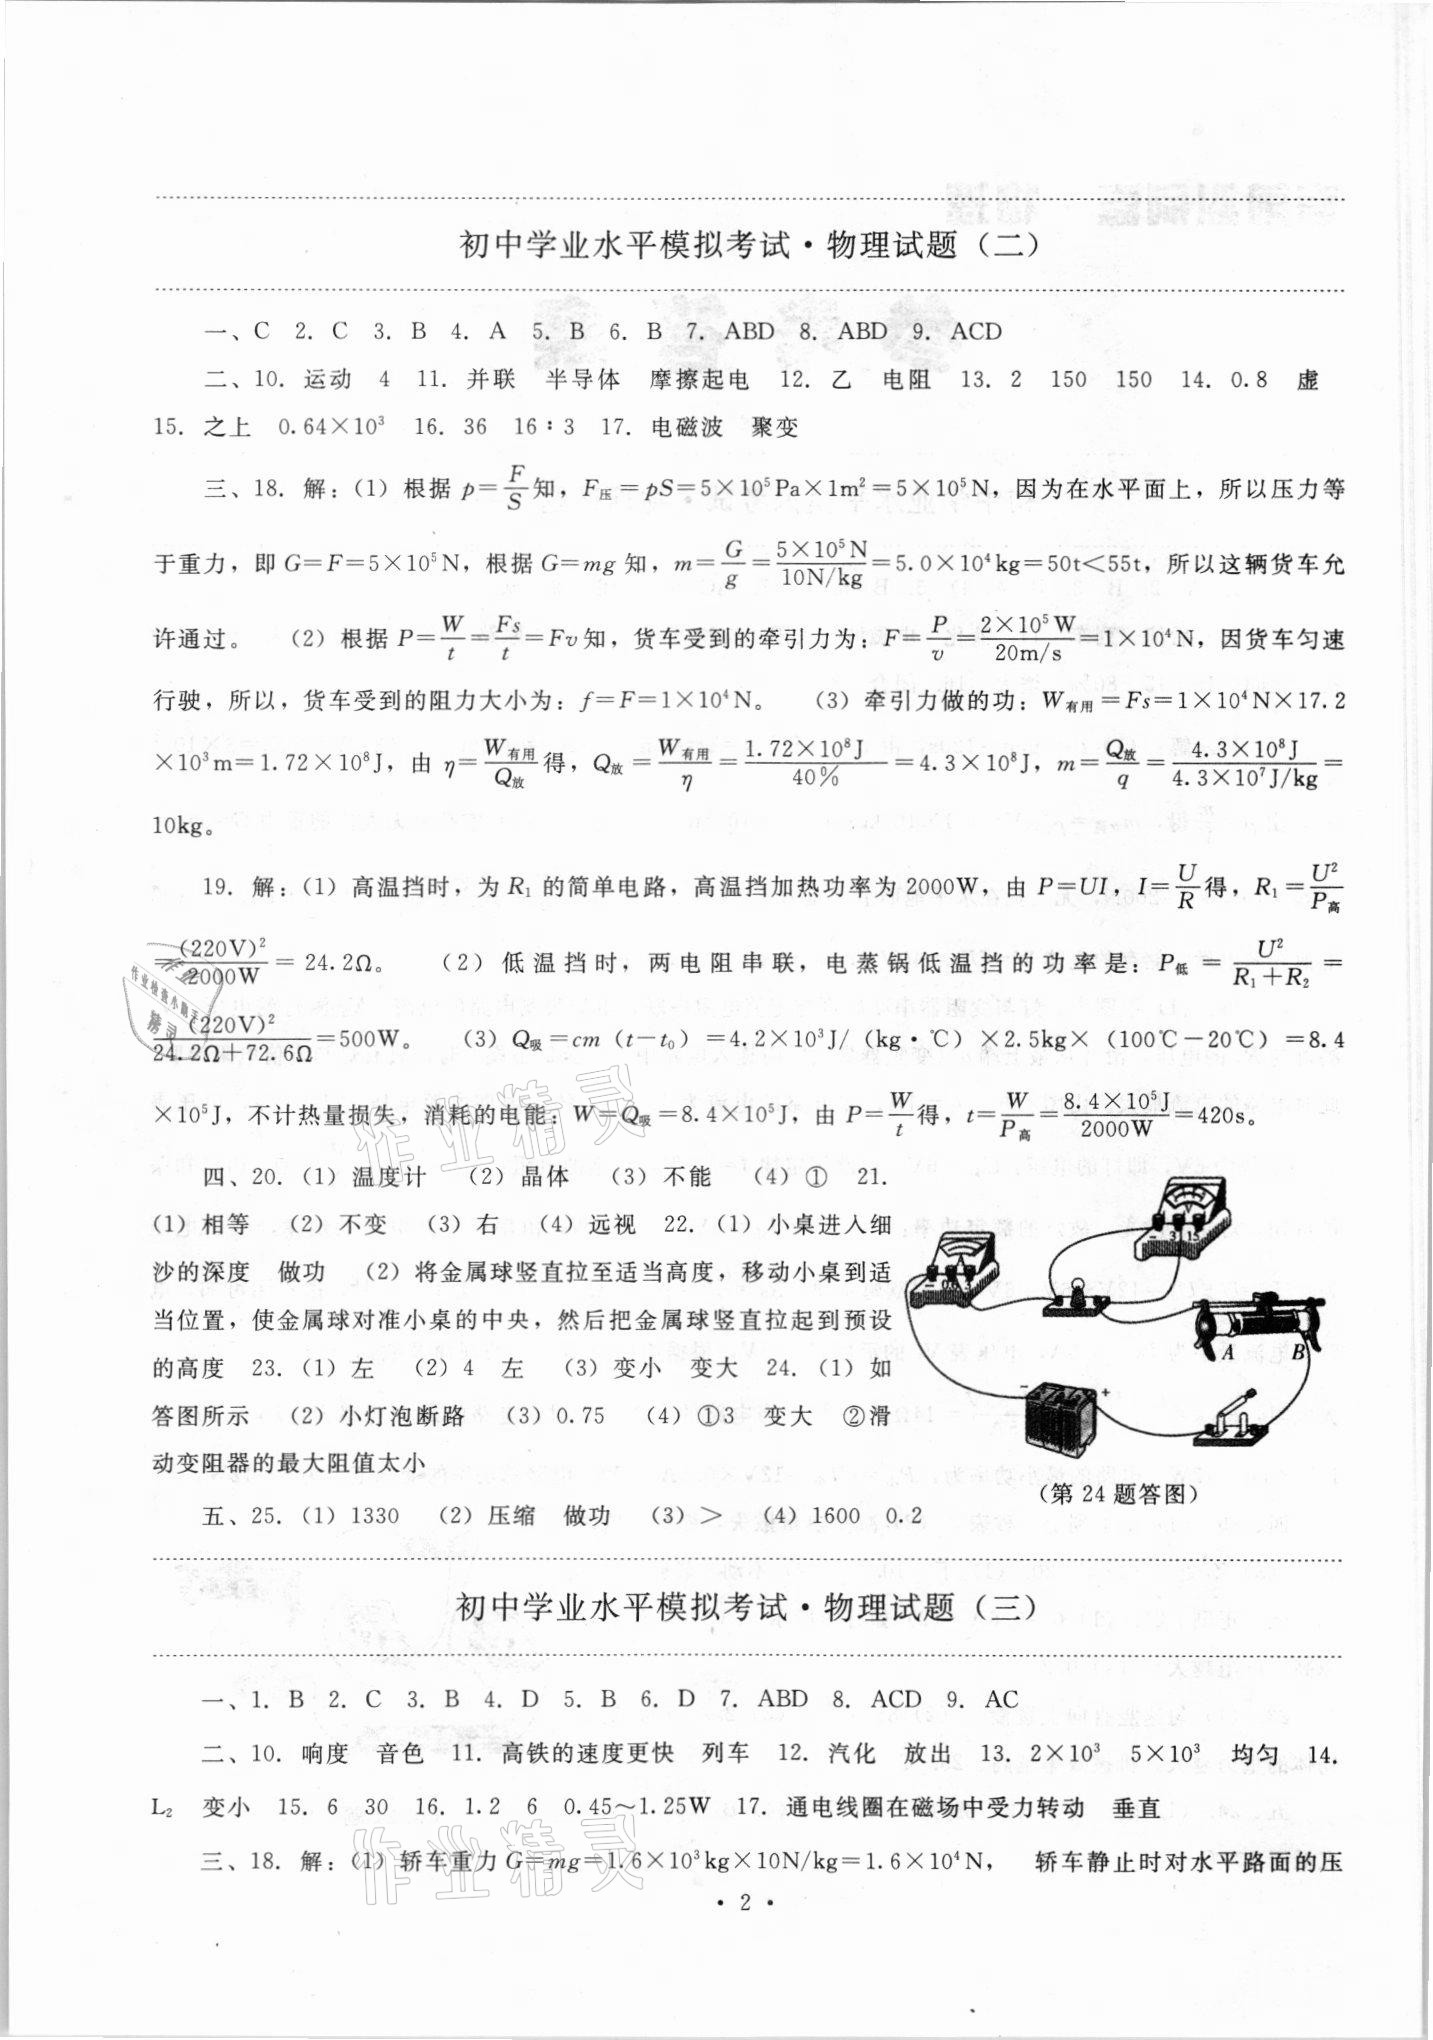 初中学业水平模拟考试·物理试题（二）
一、C 2. C 3. B 4. A 5. B 6. B 7. ABD 8. ABD 9. ACD
二、10. 运动 4 11. 并联 半导体 摩擦起电 12. 乙 电阻 13. 2 150 150 14. 0.8 虚
15. 之上 0.64×10³ 16. 36 16∶3 17. 电磁波 聚变
三、18. 解：(1) 根据 p=F/S知，F压=pS=5×10⁵Pa×1m²=5×10⁵N，因为在水平面上，所以压力等
于重力，即 G=F=5×10⁵N，根据 G=mg 知，m=G/g=5×10⁵N/10N/kg=5.0×10⁴kg=50t<55t，所以这辆货车允
许通过。 (2) 根据 P=W/t=Fs/t=Fv知，货车受到的牵引力为：F=P/v=2×10⁵W/20m/s=1×10⁴N，因货车匀速
行驶，所以，货车受到的阻力大小为：f=F=1×10⁴N。 (3) 牵引力做的功：W有用=Fs=1×10⁴N×17.2
×10³m=1.72×10⁸J，由 η=W有用/Q放得，Q放=W有用/η=1.72×10⁸J/40%=4.3×10⁸J，m=Q放/q=4.3×10⁸J/4.3×10⁷J/kg=
10kg。
19. 解：(1) 高温挡时，为 R₁ 的简单电路，高温挡加热功率为 2000W，由 P=UI，I=U/R得，R₁=U²/P高
=(220V)²/2000W=24.2Ω。 (2) 低温挡时，两电阻串联，电蒸锅低温挡的功率是：P低=U²/R₁+R₂=
(220V)²/24.2Ω+72.6Ω=500W。 (3) Q吸=cm（t−t₀）=4.2×10³J/（kg·℃）×2.5kg×（100℃−20℃）=8.4
×10⁵J，不计热量损失，消耗的电能：W=Q吸=8.4×10⁵J，由 P=W/t得，t=W/P高=8.4×10⁵J/2000W=420s。
四、20. (1) 温度计 (2) 晶体 (3) 不能 (4) ① 21.
(1) 相等 (2) 不变 (3) 右 (4) 远视 22. (1) 小桌进入细
沙的深度 做功 (2) 将金属球竖直拉至适当高度，移动小桌到适
当位置，使金属球对准小桌的中央，然后把金属球竖直拉起到预设
的高度 23. (1) 左 (2) 4 左 (3) 变小 变大 24. (1) 如
答图所示 (2) 小灯泡断路 (3) 0.75 (4) ①3 变大 ②滑
动变阻器的最大阻值太小
− 3 15
− 0.6 3
A B
− +
（第 24 题答图）
五、25. (1) 1330 (2) 压缩 做功 (3) > (4) 1600 0.2
初中学业水平模拟考试·物理试题（三）
一、1. B 2. C 3. B 4. D 5. B 6. D 7. ABD 8. ACD 9. AC
二、10. 响度 音色 11. 高铁的速度更快 列车 12. 汽化 放出 13. 2×10³ 5×10³ 均匀 14.
L₂ 变小 15. 6 30 16. 1.2 6 0.45～1.25W 17. 通电线圈在磁场中受力转动 垂直
三、18. 解：(1) 轿车重力 G=mg=1.6×10³kg×10N/kg=1.6×10⁴N， 轿车静止时对水平路面的压
· 2 ·
作业精灵
作业精灵
作业检查小助手
精灵